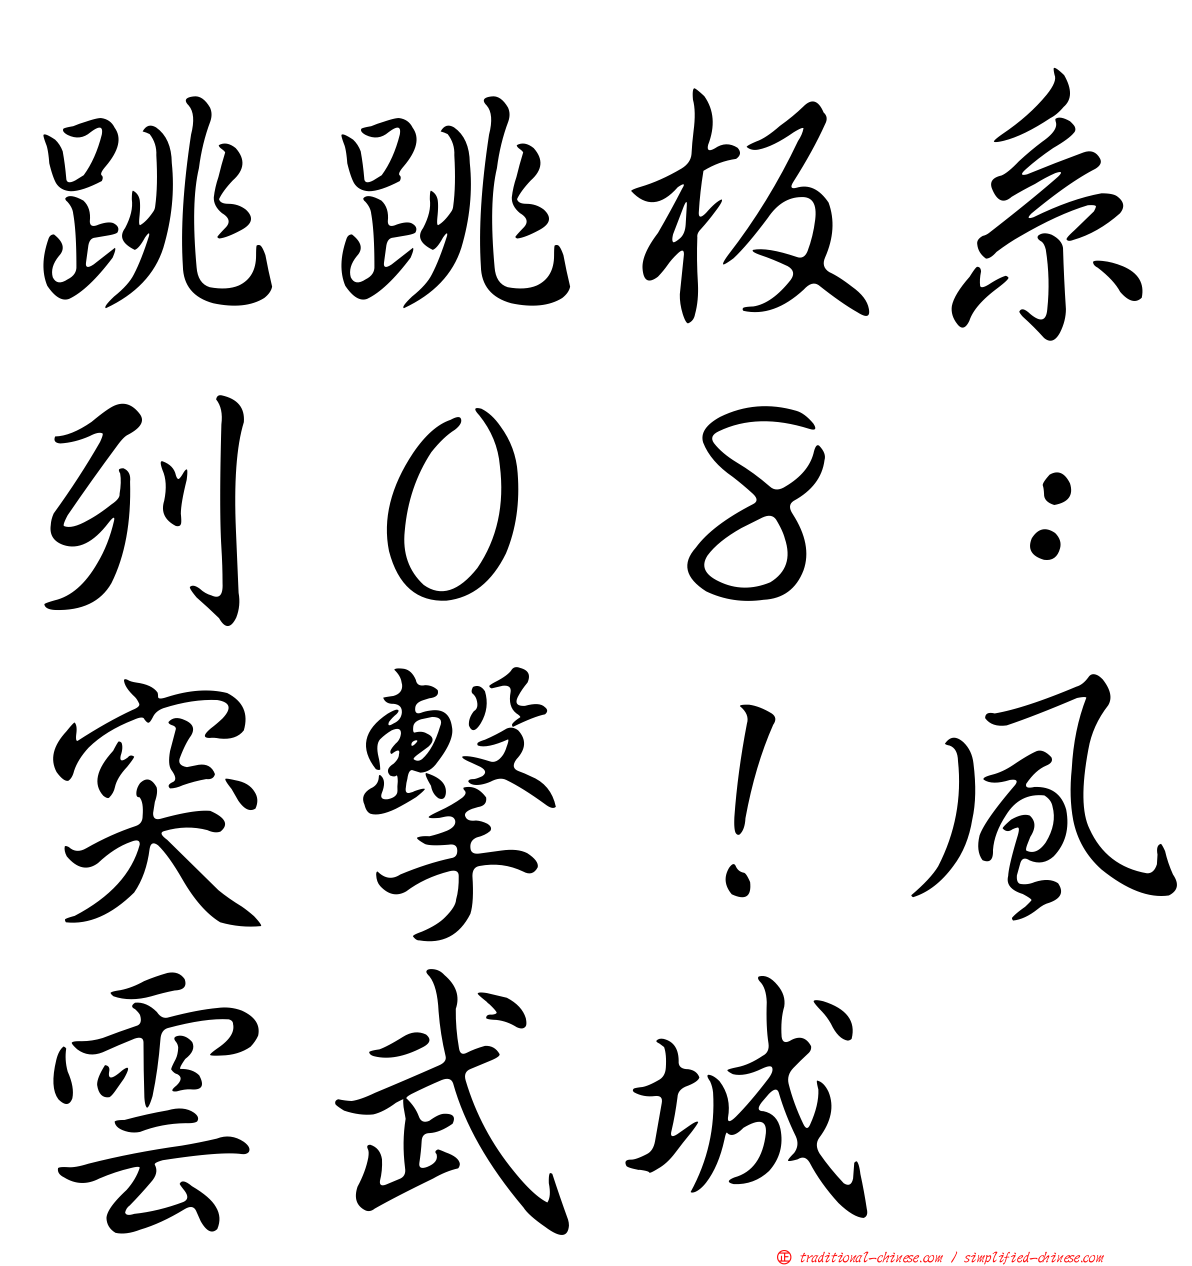 跳跳板系
列08：
突擊！風
雲武城
㊣ traditional-chinese.com / simplified-chinese.com